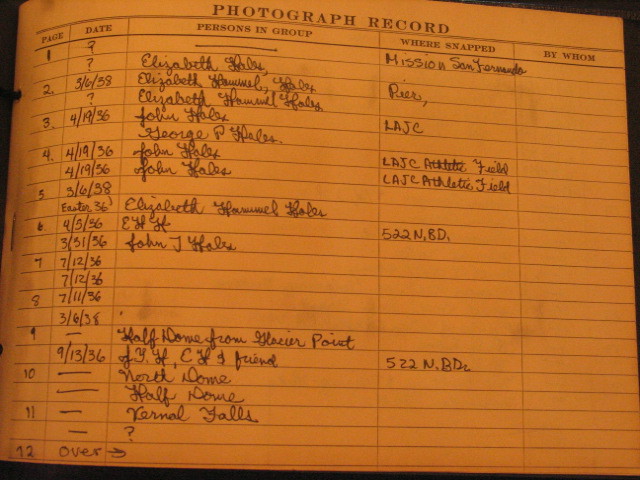 PHOTOGRAPH RECORD
PAGE DATE PERSONS IN GROUP WHERE SNAPPED BY WHOM
1 ? —
? Elizabeth Hales, Mission San Fernando
2. 3/6/38 Elizabeth Hammel, Hales Pier,
? Elizabeth Hammel Hales
3. 4/19/36 John Hales LAJC
George P Hales.
4. 4/19/36 John Hales LAJC Athletic Field
4/19/36 John Hales LAJC Athletic Field
5 3/6/38
Easter 36 Elizabeth Hammel Hales
6 4/5/36 E H H
3/31/36 John J Hales 522 N. BD.
7 7/12/36
7/12/36
8 7/11/36
3/6/38
9 — Half Dome from Glacier Point
9/13/36 H, C H & friend 522 N. BD.
10 — North Dome
— Half Dome
11 — Vernal Falls
— ?
12 over →